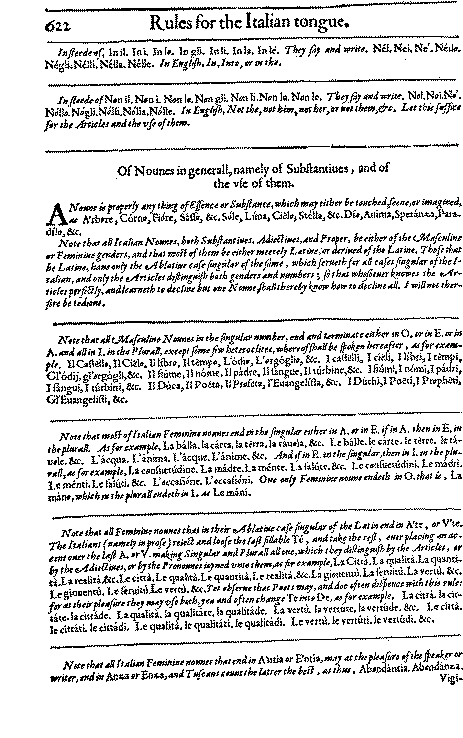 622 Rules for the Italian tongue.
In steede of, In il. In i. In lo. In gli. In li. In la. In le. They say and write. Nél. Nei, Ne'. Néllo.
Négli. Nélli. Nélla. Nélle. In English, In, Into, or in the.
In steede of Non il, Non i. Non lo. Non gli. Non li. Non la. Non le. They say and write. Nol. Noi. No'.
Nóllo. Nógli. Nólli. Nólla. Nólle. In English, Not the, not him, not her, or not them, &c. Let this suffice
for the Articles and the vse of them.
Of Nounes in generall, namely of Substantiues, and of
the vse of them.
A Noune is properly any thing of Essence or Substance, which may either be touched, seene, or imagined,
as Córno, Fióre, Sásso, &c. Sóle, Lúna, Ciélo, Stélla, &c. Dío, Anima, Speránza, Para-
díso, &c.
Note that all Italian Nounes, both Substantiues, Adiectiues, and Proper, be either of the Masculine
or Feminine genders, and that most of them be either meerely Latine, or deriued of the Latine. Those that
be Latine, haue only the Ablatiue case singular of the same, which serueth for all cases singular of the I-
talian, and only the Articles distinguish both genders and numbers; so that whosoeuer knowes the Ar-
ticles perfectly, and learneth to decline but one Noune shall thereby know how to decline all. I will not ther-
fore be tedious.
Note that all Masculine Nounes in the singular number, end and terminate either in O. or in E. or in
A. and all in I. in the Plurall, except some few heteroclites, whereof shall be spoken hereafter, as for exam-
ple. Il Castéllo, Il Ciélo, Il libro, Il témpo, L'ódio, L'ergóglio, &c. I castélli, I ciéli, I libri, I témpi,
Gl'ódij, gl'ergógli, &c. Il fiúme, Il nóme, Il pádre, Il sángue, Il túrbine, &c. I fiúmi, I nómi, I pádri,
I sángui, I túrbini, &c. Il Dúca, Il Poéta, Il Proféta, l'Euangelísta, &c. I Dúchi, I Poéti, I Prophéti,
Gl'Euangelísti, &c.
Note that most of Italian Feminine nounes end in the singular either in A. or in E. if in A. then in E. in
the plurall. As for example, La bálla, la cárta, la térra, la táuola, &c. Le bálle, le cárte, le térre, le tá-
uole, &c. L'ácqua, L'ánima, L'ácque, L'ánime, &c. And if in E. in the singular, then in I. in the plu-
rall, as for example, La consuetúdine, La mádre, La ménte, La salúte, &c. Le consuetúdini, Le mádri,
Le ménti, Le salúti, &c. L'occasióne, L'occasióni. One only Feminine noune endeth in O. that is, La
máno, which in the plurall endeth in I. as Le máni.
Note that all Feminine nounes that in their Ablatiue case singular of the Latin end in A'te, or V'te,
The Italians (namely in prose) reiect and loose the last sillable Té, and take the rest, euer placing an ac-
cent ouer the last A. or V. making Singular and Plurall all one, which they distinguish by the Articles, or
by the Adiectiues, or by the Pronounes ioyned vnto them, as for example, La Città. La qualità. La quanti-
tà. La realità. &c. Le città. Le qualità. Le quantità. Le realità. &c. La giouentù. La seruitù. La vertù. &c.
Le giouentù. Le seruitù. Le vertù. &c. Yet obserue that Poets may, and doe often dispence with this rule:
for at their pleasure they may vse both, yea and often change Te into De, as for example, La città. la cit-
táte. la cittáde. La qualità. la qualitáte. la qualitáde. La vertù. la vertúte. la vertúde. &c. Le città.
le cittáti. le cittádi. Le qualità. le qualitáti. le qualitádi. Le vertù. le vertúti. le vertúdi. &c.
Note that all Italian Feminine nounes that end in A'ntia or E'ntia, may at the pleasure of the speaker or
writer, end in Anza or Enza, and Tuscans count the latter the best, as thus, Abondántia, Abondánza.
Vigi-